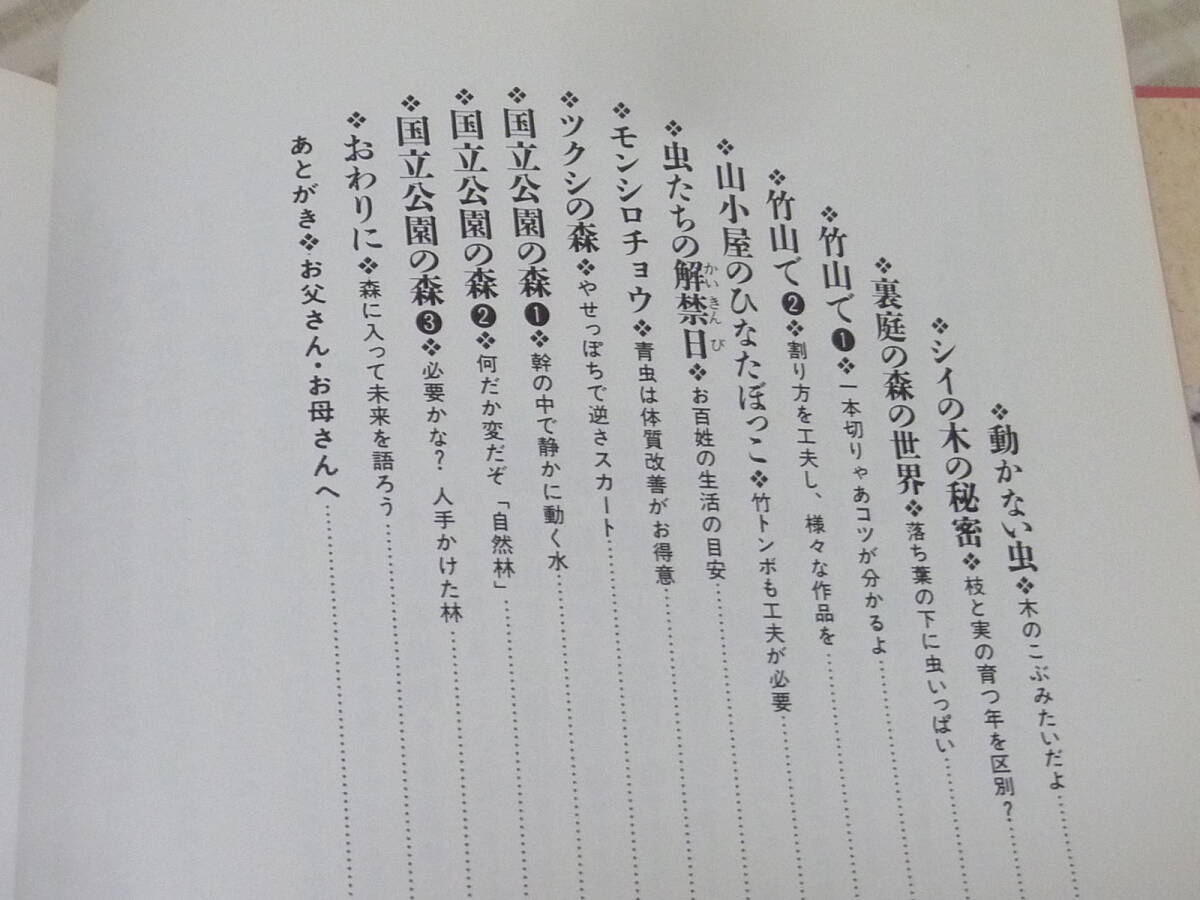 ❖動かない虫❖木のこぶみたいだよ…………
❖シイの木の秘密❖枝と実の育つ年を区別？…………
❖裏庭の森の世界❖落ち葉の下に虫いっぱい…………
❖竹山で❶❖一本切りゃあコツが分かるよ…………
❖竹山で❷❖割り方を工夫し、様々な作品を…………
❖山小屋のひなたぼっこ❖竹トンボも工夫が必要…………
❖虫たちの解禁日❖お百姓の生活の目安…………
かいきんび
❖モンシロチョウ❖青虫は体質改善がお得意…………
❖ツクシの森❖やせっぽちで逆さスカート…………
❖国立公園の森❶❖幹の中で静かに動く水…………
❖国立公園の森❷❖何だか変だぞ「自然林」…………
❖国立公園の森❸❖必要かな？人手かけた林…………
❖おわりに❖森に入って未来を語ろう…………
あとがき❖お父さん・お母さんへ…………